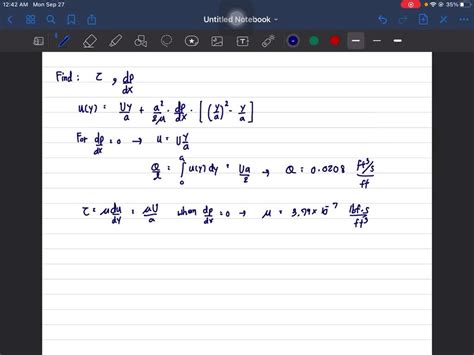 12:42 AM Mon Sep 27
35%
Untitled Notebook
Find: τ, dp/dx
u(y) = Uy/a + a²/2μ · dp/dx · [(y/a)² - y/a]
For dp/dx = 0 → u = U y/a
Q/l = ∫₀ᵃ u(y) dy = Ua/2 → Q = 0.0208 ft³/s/ft
τ = μ du/dy = μU/a when dp/dx = 0 → μ = 3.79 × 10⁻⁷ lbf·s/ft³